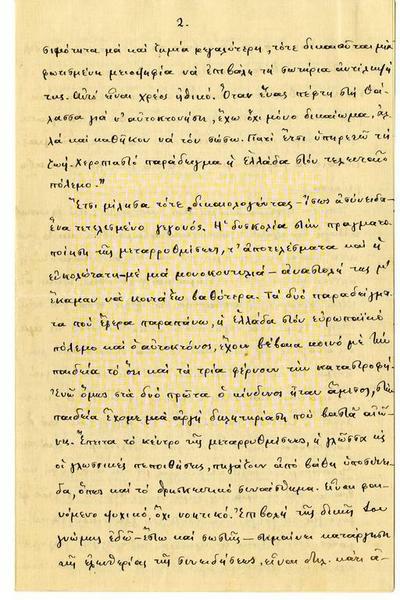 2.
σιμότητα μὰ καὶ ζημία μεγαλύτερη, τότε δικαιοῦται μιὰ
φωτισμένη μειοψηφία νὰ ἐπιβάλη τὴ σωτήρια ἀντίληψή
της. Αὐτὸ εἶναι χρέος ἠθικό. Ὅταν ἕνας πέφτη στὴ θά-
λασσα γιὰ ν' αὐτοκτονήση, ἔχω ὄχι μόνο δικαίωμα, ἀλ-
λὰ καὶ καθῆκον νὰ τὸν σώσω. Γιατὶ ἔτσι ὑπηρετῶ τὴ
ζωή. Χεροπιαστὸ παράδειγμα ἡ Ἑλλάδα στὸν τελευταῖο
πόλεμο."
Ἔτσι μίλησα τότε, δικαιολογώντας – ἴσως ἀσύνειδα –
ἕνα τετελεσμένο γεγονός. Ἡ δυσκολία στὴν πραγματο-
ποίηση τῆς μεταρρυθμίσεως, τ' ἀποτελέσματα καὶ ἡ
εὐκολώτατη – μὲ μιὰ μονοκοντυλιὰ – ἀναστολή της μ'
ἔκαμαν νὰ κοιτάξω βαθύτερα. Τὰ δυὸ παραδείγμα-
τα ποὺ ἔφερα παραπάνω, ἡ Ἑλλάδα στὸν εὐρωπαϊκὸ
πόλεμο καὶ ὁ αὐτοκτόνος, ἔχουν βέβαια κοινὸ μὲ τὴν
παιδεία τὸ ὅτι καὶ τὰ τρία φέρνουν τὴν καταστροφή.
Ἐνῶ ὅμως στὰ δυὸ πρῶτα ὁ κίνδυνος ἦταν ἄμεσος, στὴν
παιδεία ἔχομε μιὰ ἀργὴ δηλητηρίαση ποὺ βαστᾶ αἰῶ-
νες. Ἔπειτα τὸ κέντρο τῆς μεταρρυθμίσεως, ἡ γλῶσσα κι
οἱ γλωσσικὲς πεποιθήσεις, πηγάζουν ἀπὸ βάθη ὑποσυνεί-
δα, ὅπως καὶ τὸ θρησκευτικὸ συναίσθημα. Εἶναι φαι-
νόμενο ψυχικό, ὄχι νοητικό. Ἐπιβολὴ τῆς δικῆς σου
γνώμης ἐδῶ – ἔστω καὶ σωστῆς – σημαίνει κατάργηση
τῆς ἐλευθερίας τῆς συνειδήσεως, εἶναι δηλ. κάτι ἀ-